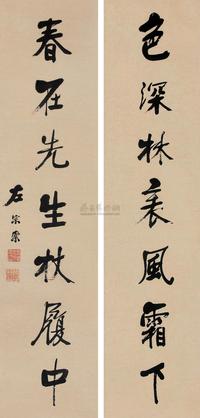 色深林表風霜下
春在先生杖履中
左宗棠